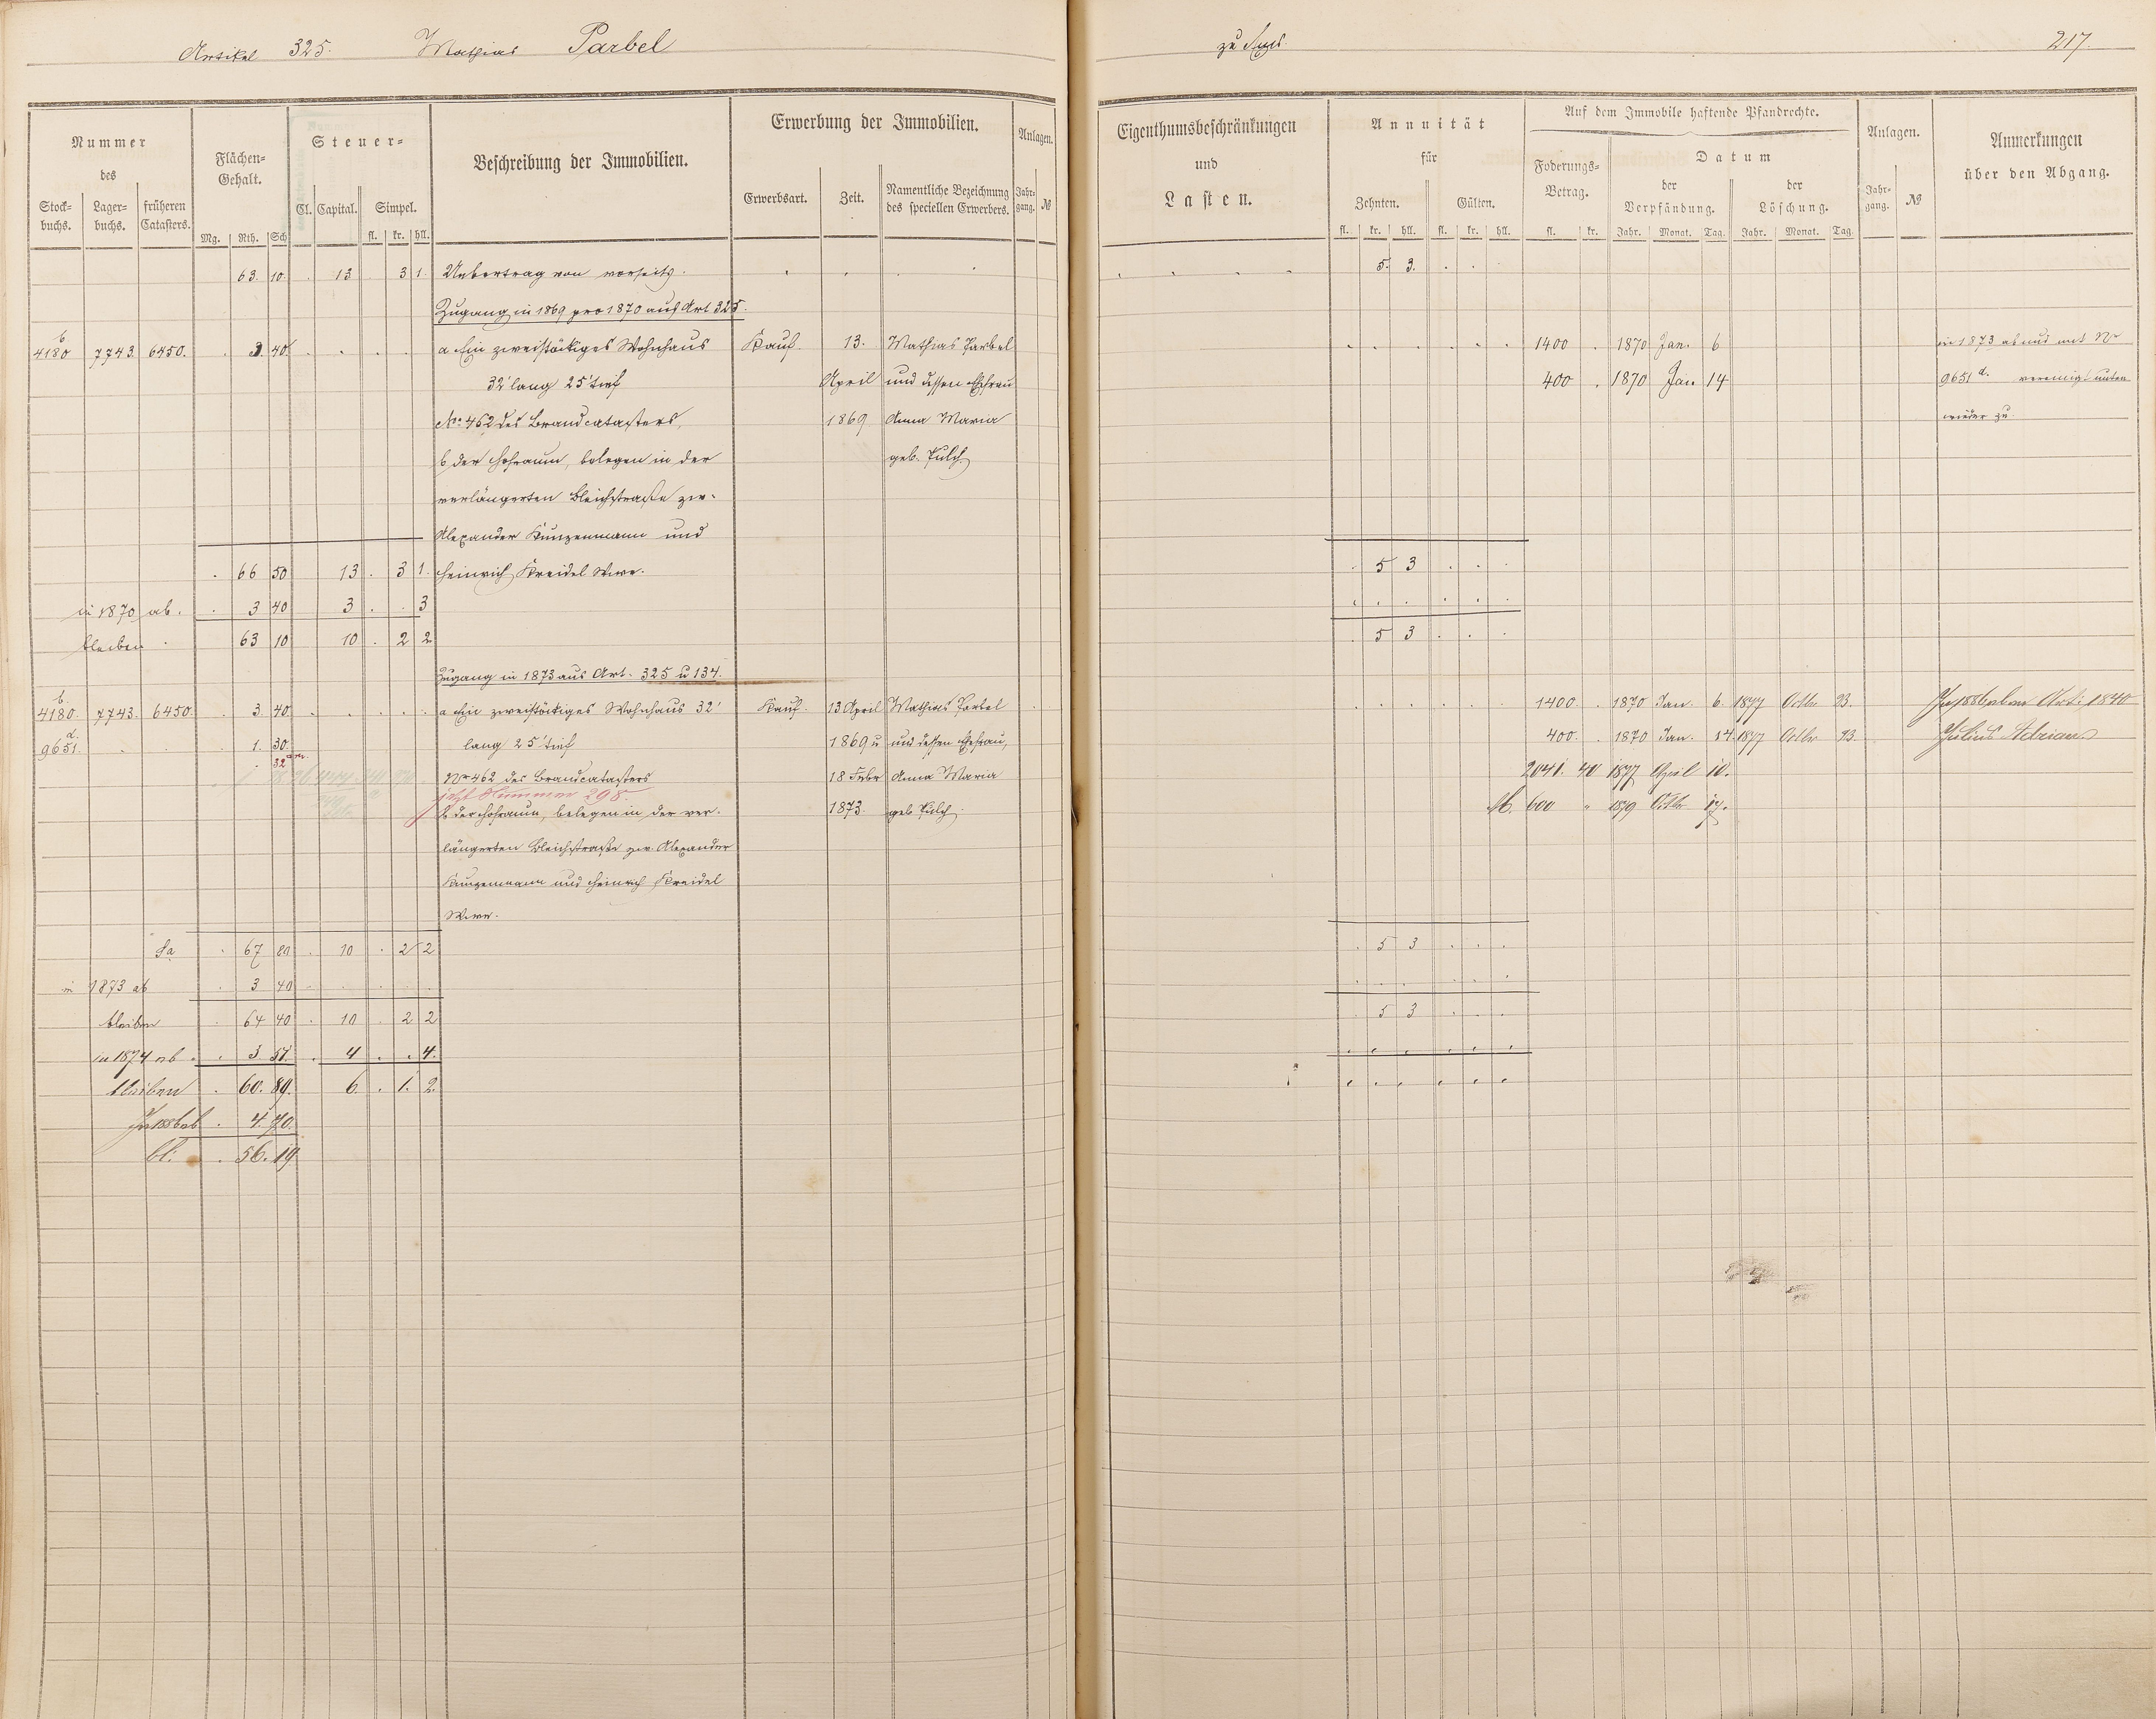 Artikel 325. Mathias Parbel
Nummer
des
Stock-
buchs.
Lager-
buchs.
früheren
Catasters.
Flächen-
Gehalt.
Mg. Rth. Sch
Steuer-
Cl. Capital. Simpel.
fl. kr. hll.
Beschreibung der Immobilien.
Erwerbung der Immobilien.
Erwerbsart. Zeit.
Namentliche Bezeichnung
des speciellen Erwerbers.
Anlagen.
Jahr-
gang. №
63. 10. 13 3 1. Uebertrag von vorseits.
Zugang in 1869 pro 1870 auf Art 325.
b
4180 7743. 6450. 3. 40. a Ein zweistöckiges Wohnhaus Kauf. 13. Mathias Parbel
32' lang 25' tief April und dessen Ehefrau
No. 462 des Brandcatasters, 1869 Anna Maria
b, der Hofraum, belegen in der geb. Pulch
verlängerten Bleichstraße zw.
Alexander Kunzenmann und
66 50 13 3 1. Heinrich Kreidel Wwe.
in 1870 ab. 3 40 3 3
bleiben 63 10 10 2 2
Zugang in 1873 aus Art. 325 u 134.
b.
4180. 7743. 6450. 3. 40. a Ein zweistöckiges Wohnhaus 32' Kauf. 13 April Mathias Parbel
d.
9651. 1. 30. lang 25' tief 1869 u und dessen Ehefrau,
32
No 462 des Brandcatasters 18 Febr Anna Maria
jetzt Nummer 298.
b der Hofraum, belegen in der ver- 1873. geb Pulch.
längerten Bleichstraße zw. Alexander
Kunzenmann und Heinrich Kreidel
Wwe.
Sa 67 80 10 2 2
in 1873 ab 3 40
bleiben 64 40 10 2 2
in 1874 ab 3 51. 4 4.
bleiben 60. 89. 6. 1. 2.
In 1886 ab 4. 70.
bl: 56. 19
217.
Eigenthumsbeschränkungen
und
Lasten.
Annuität
für
Zehnten. Gülten.
fl. kr. hll. fl. kr. hll.
Auf dem Immobile haftende Pfandrechte.
Foderungs-
Betrag.
fl. kr.
Datum
der
Verpfändung.
Jahr. Monat. Tag.
der
Löschung.
Jahr. Monat. Tag.
Anlagen.
Jahr-
gang. №
Anmerkungen
über den Abgang.
5. 3.
1400 1870 Jan. 6 in 1873 ab und mit No
400 1870 Jan. 14 9651 d. vereinigt unten
wieder zu.
5 3
5 3
1400. 1870 Jan. 6. 1877 Octbr 23. In 1886 ab an Art: 1840
400. 1870 Jan. 14. 1877 Octbr 23. Julius Adrian
2041. 40 1877 April 10.
M. 600 " 1879 Octbr 17.
5 3
5 3